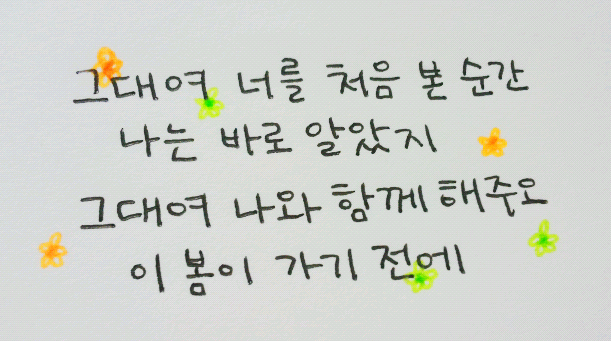 그대여 너를 처음 본 순간
나는 바로 알았지
그대여 나와 함께 해주오
이 봄이 가기 전에